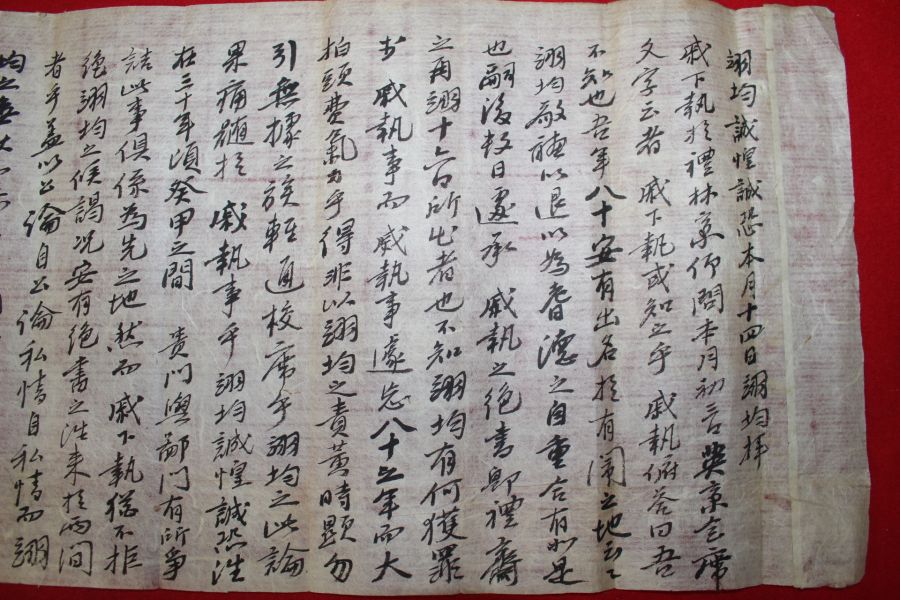 翊均誠惶誠恐本月十四日翊均拜
戚下執於禮林 仰問本月初吉 會席
文字云者 戚下執或知之乎 戚執俯答曰吾
不知也吾年八十安有出名於有 之地云云
翊均敬 以退以為耆德之自重合有如是
也嗣後數日遽承 戚執之絕書即禮齋
之再翊 所出者也不知翊均有何獲罪
於 戚執事而戚執事遽忘八十之年而大
拍頭費氣力乎得非以翊均之責黃時顯勿
引無據之族輕通校席乎翊均之此論
果痛髓於 戚執事乎翊均誠惶誠恐
在三十年頃癸甲之間 貴門與鄙門有所爭
詰此事俱係為先之地然而戚下執猶不拒
絕翊均之候謁况安有絕書之 來於兩間
者乎盖以公論自公論私情自私情而翊
均之